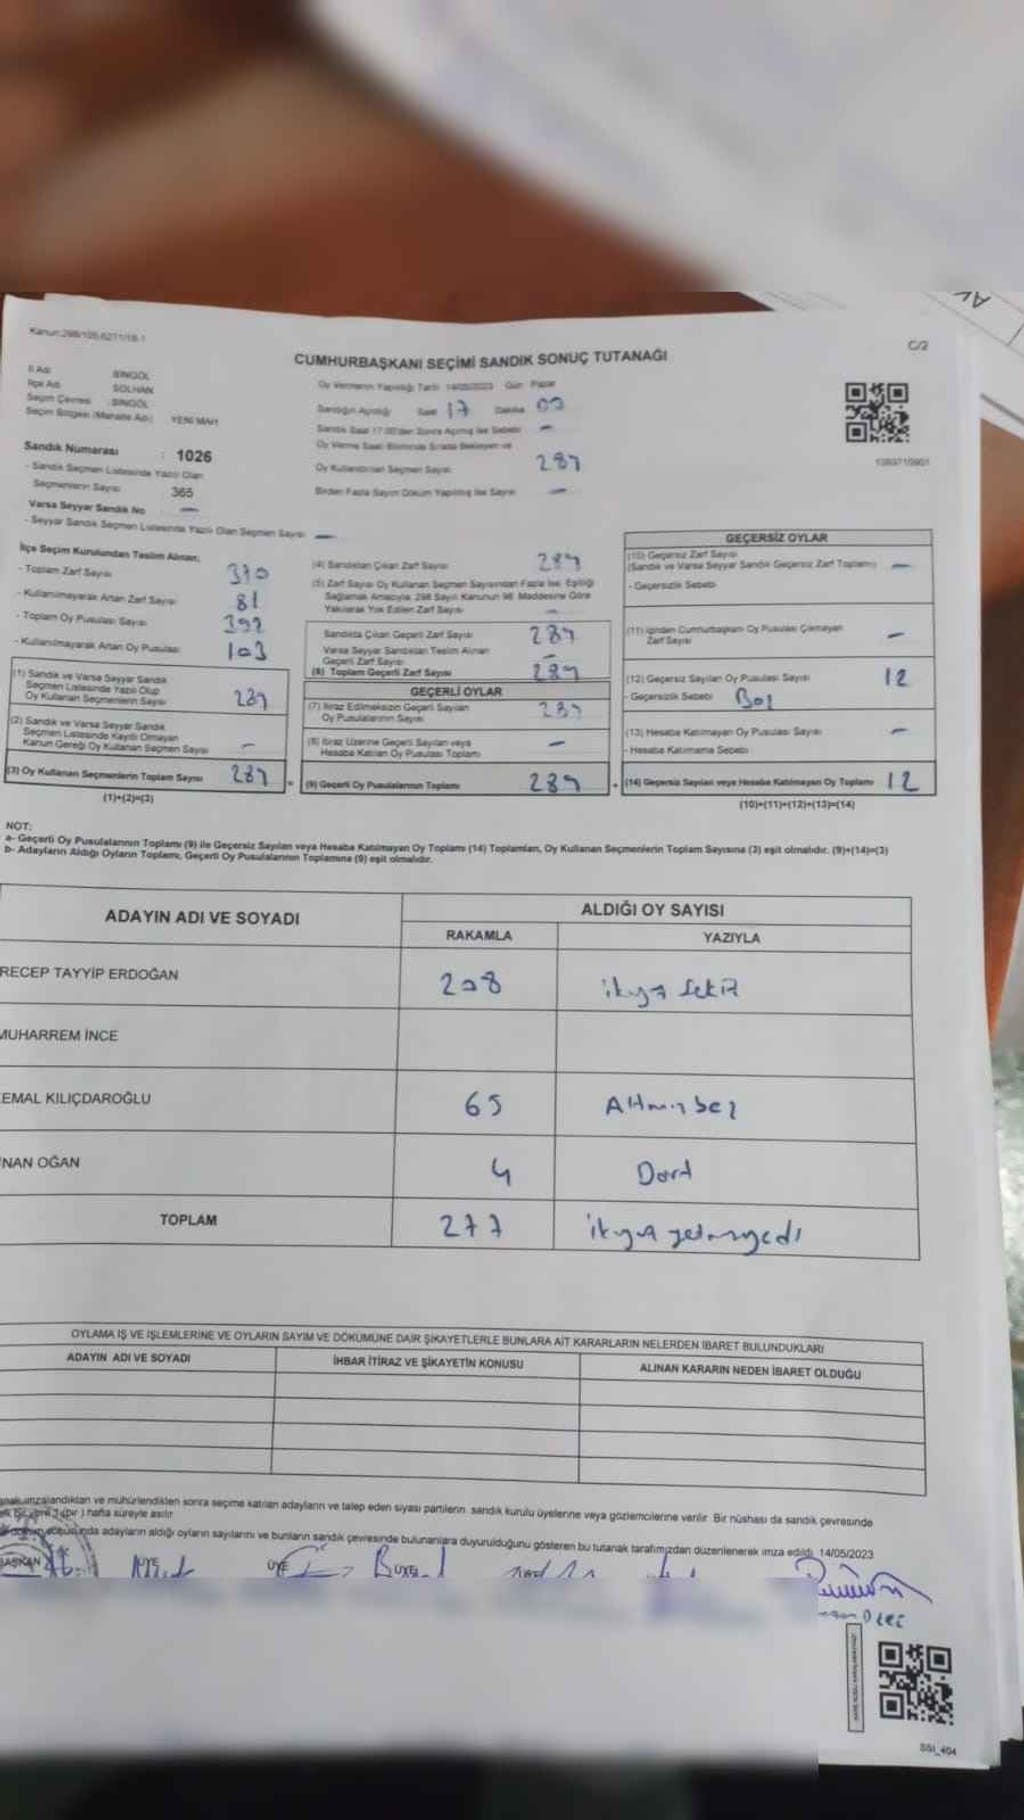 Kanun:298/105,6271/18-1
C/2
CUMHURBAŞKANI SEÇİMİ SANDIK SONUÇ TUTANAĞI
İl Adı BİNGÖL
İlçe Adı SOLHAN
Seçim Çevresi BİNGÖL
Seçim Bölgesi (Mahalle Adı) YENİ MAH
Sandık Numarası : 1026
- Sandık Seçmen Listesinde Yazılı Olan
Seçmenlerin Sayısı 365
Varsa Seyyar Sandık No —
- Seyyar Sandık Seçmen Listesinde Yazılı Olan Seçmen Sayısı —
Oy Vermenin Yapıldığı Tarih 14/05/2023 Gün Pazar
Sandığın Açıldığı Saat 17 Dakika 00
Sandık Saat 17.00'den Sonra Açılmış İse Sebebi —
Oy Verme Saati Bitiminde Sırada Bekleyen ve
Oy Kullandırılan Seçmen Sayısı 289
Birden Fazla Sayım Döküm Yapılmış İse Sayısı —
İlçe Seçim Kurulundan Teslim Alınan;
- Toplam Zarf Sayısı 370
- Kullanılmayarak Artan Zarf Sayısı 81
- Toplam Oy Pusulası Sayısı 392
- Kullanılmayarak Artan Oy Pusulası 103
(1) Sandık ve Varsa Seyyar Sandık
Seçmen Listesinde Yazılı Olup
Oy Kullanan Seçmenlerin Sayısı 289
(2) Sandık ve Varsa Seyyar Sandık
Seçmen Listesinde Kayıtlı Olmayan
Kanun Gereği Oy Kullanan Seçmen Sayısı —
(3) Oy Kullanan Seçmenlerin Toplam Sayısı 289
(1)+(2)=(3)
(4) Sandıktan Çıkan Zarf Sayısı 289
(5) Zarf Sayısı Oy Kullanan Seçmen Sayısından Fazla İse, Eşitliği
Sağlamak Amacıyla; 298 Sayılı Kanunun 98. Maddesine Göre
Yakılarak Yok Edilen Zarf Sayısı —
Sandıkta Çıkan Geçerli Zarf Sayısı 289
Varsa Seyyar Sandıktan Teslim Alınan
Geçerli Zarf Sayısı —
(6) Toplam Geçerli Zarf Sayısı 289
GEÇERLİ OYLAR
(7) İtiraz Edilmeksizin Geçerli Sayılan
Oy Pusulalarının Sayısı 289
(8) İtiraz Üzerine Geçerli Sayılan veya
Hesaba Katılan Oy Pusulası Toplamı —
(9) Geçerli Oy Pusulalarının Toplamı 289
GEÇERSİZ OYLAR
(10) Geçersiz Zarf Sayısı
(Sandık ve Varsa Seyyar Sandık Geçersiz Zarf Toplamı) —
- Geçersizlik Sebebi
(11) İçinden Cumhurbaşkanı Oy Pusulası Çıkmayan
Zarf Sayısı —
(12) Geçersiz Sayılan Oy Pusulası Sayısı 12
- Geçersizlik Sebebi Boş
(13) Hesaba Katılmayan Oy Pusulası Sayısı —
- Hesaba Katılmama Sebebi
(14) Geçersiz Sayılan veya Hesaba Katılmayan Oy Toplamı 12
(10)+(11)+(12)+(13)=(14)
NOT:
a- Geçerli Oy Pusulalarının Toplamı (9) ile Geçersiz Sayılan veya Hesaba Katılmayan Oy Toplamı (14) Toplamları, Oy Kullanan Seçmenlerin Toplam Sayısına (3) eşit olmalıdır. (9)+(14)=(3)
b- Adayların Aldığı Oyların Toplamı, Geçerli Oy Pusulalarının Toplamına (9) eşit olmalıdır.
ADAYIN ADI VE SOYADI ALDIĞI OY SAYISI
RAKAMLA YAZIYLA
RECEP TAYYİP ERDOĞAN 208 ikiyüz sekiz
MUHARREM İNCE
EMAL KILIÇDAROĞLU 65 Altmış beş
NAN OĞAN 4 Dört
TOPLAM 277 ikiyüz yetmişyedi
OYLAMA İŞ VE İŞLEMLERİNE VE OYLARIN SAYIM VE DÖKÜMÜNE DAİR ŞİKAYETLERLE BUNLARA AİT KARARLARIN NELERDEN İBARET BULUNDUKLARI
ADAYIN ADI VE SOYADI İHBAR İTİRAZ VE ŞİKAYETİN KONUSU ALINAN KARARIN NEDEN İBARET OLDUĞU
imzalandıktan ve mühürlendikten sonra seçime katılan adayların ve talep eden siyasi partilerin sandık kurulu üyelerine veya gözlemcilerine verilir. Bir nüshası da sandık çevresinde
hafta süreyle asılır
adayların aldığı oyların sayılarını ve bunların sandık çevresinde bulunanlara duyurulduğunu gösteren bu tutanak tarafımızdan düzenlenerek imza edildi. 14/05/2023
BAŞKAN ÜYE ÜYE
SSI_404